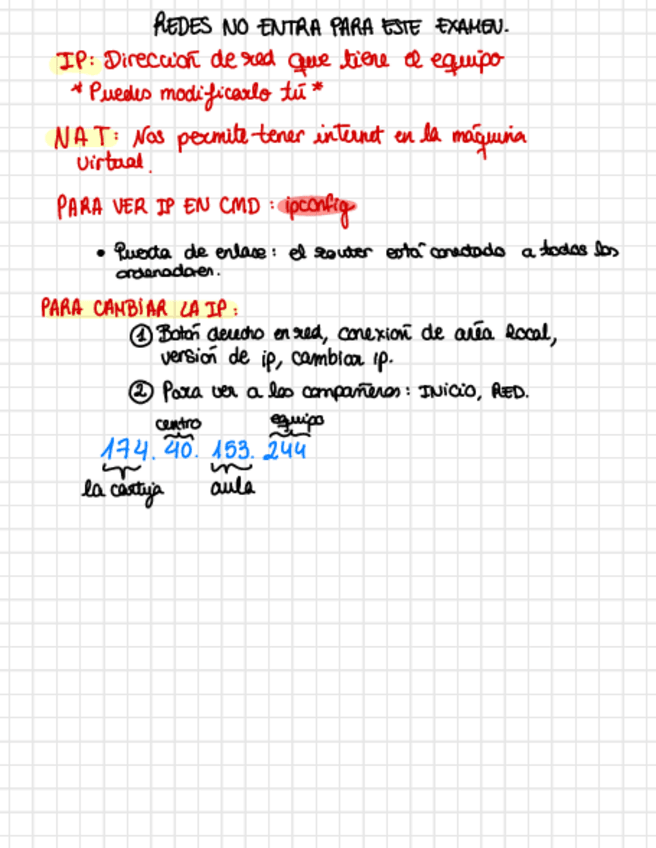 REDES NO ENTRA PARA ESTE EXAMEN.
IP: Dirección de red que tiene el equipo
* Puedes modificarlo tú *
NAT: Nos permite tener internet en la máquina
virtual.
PARA VER IP EN CMD: ipconfig
• Puerta de enlace: el router está conectado a todos los
ordenadores.
PARA CAMBIAR LA IP:
① Botón derecho en red, conexión de area local,
versión de ip, cambiar ip.
② Para ver a los compañeros: INICIO, RED.
centro equipo
174. 40. 153. 244
la cartuja aula